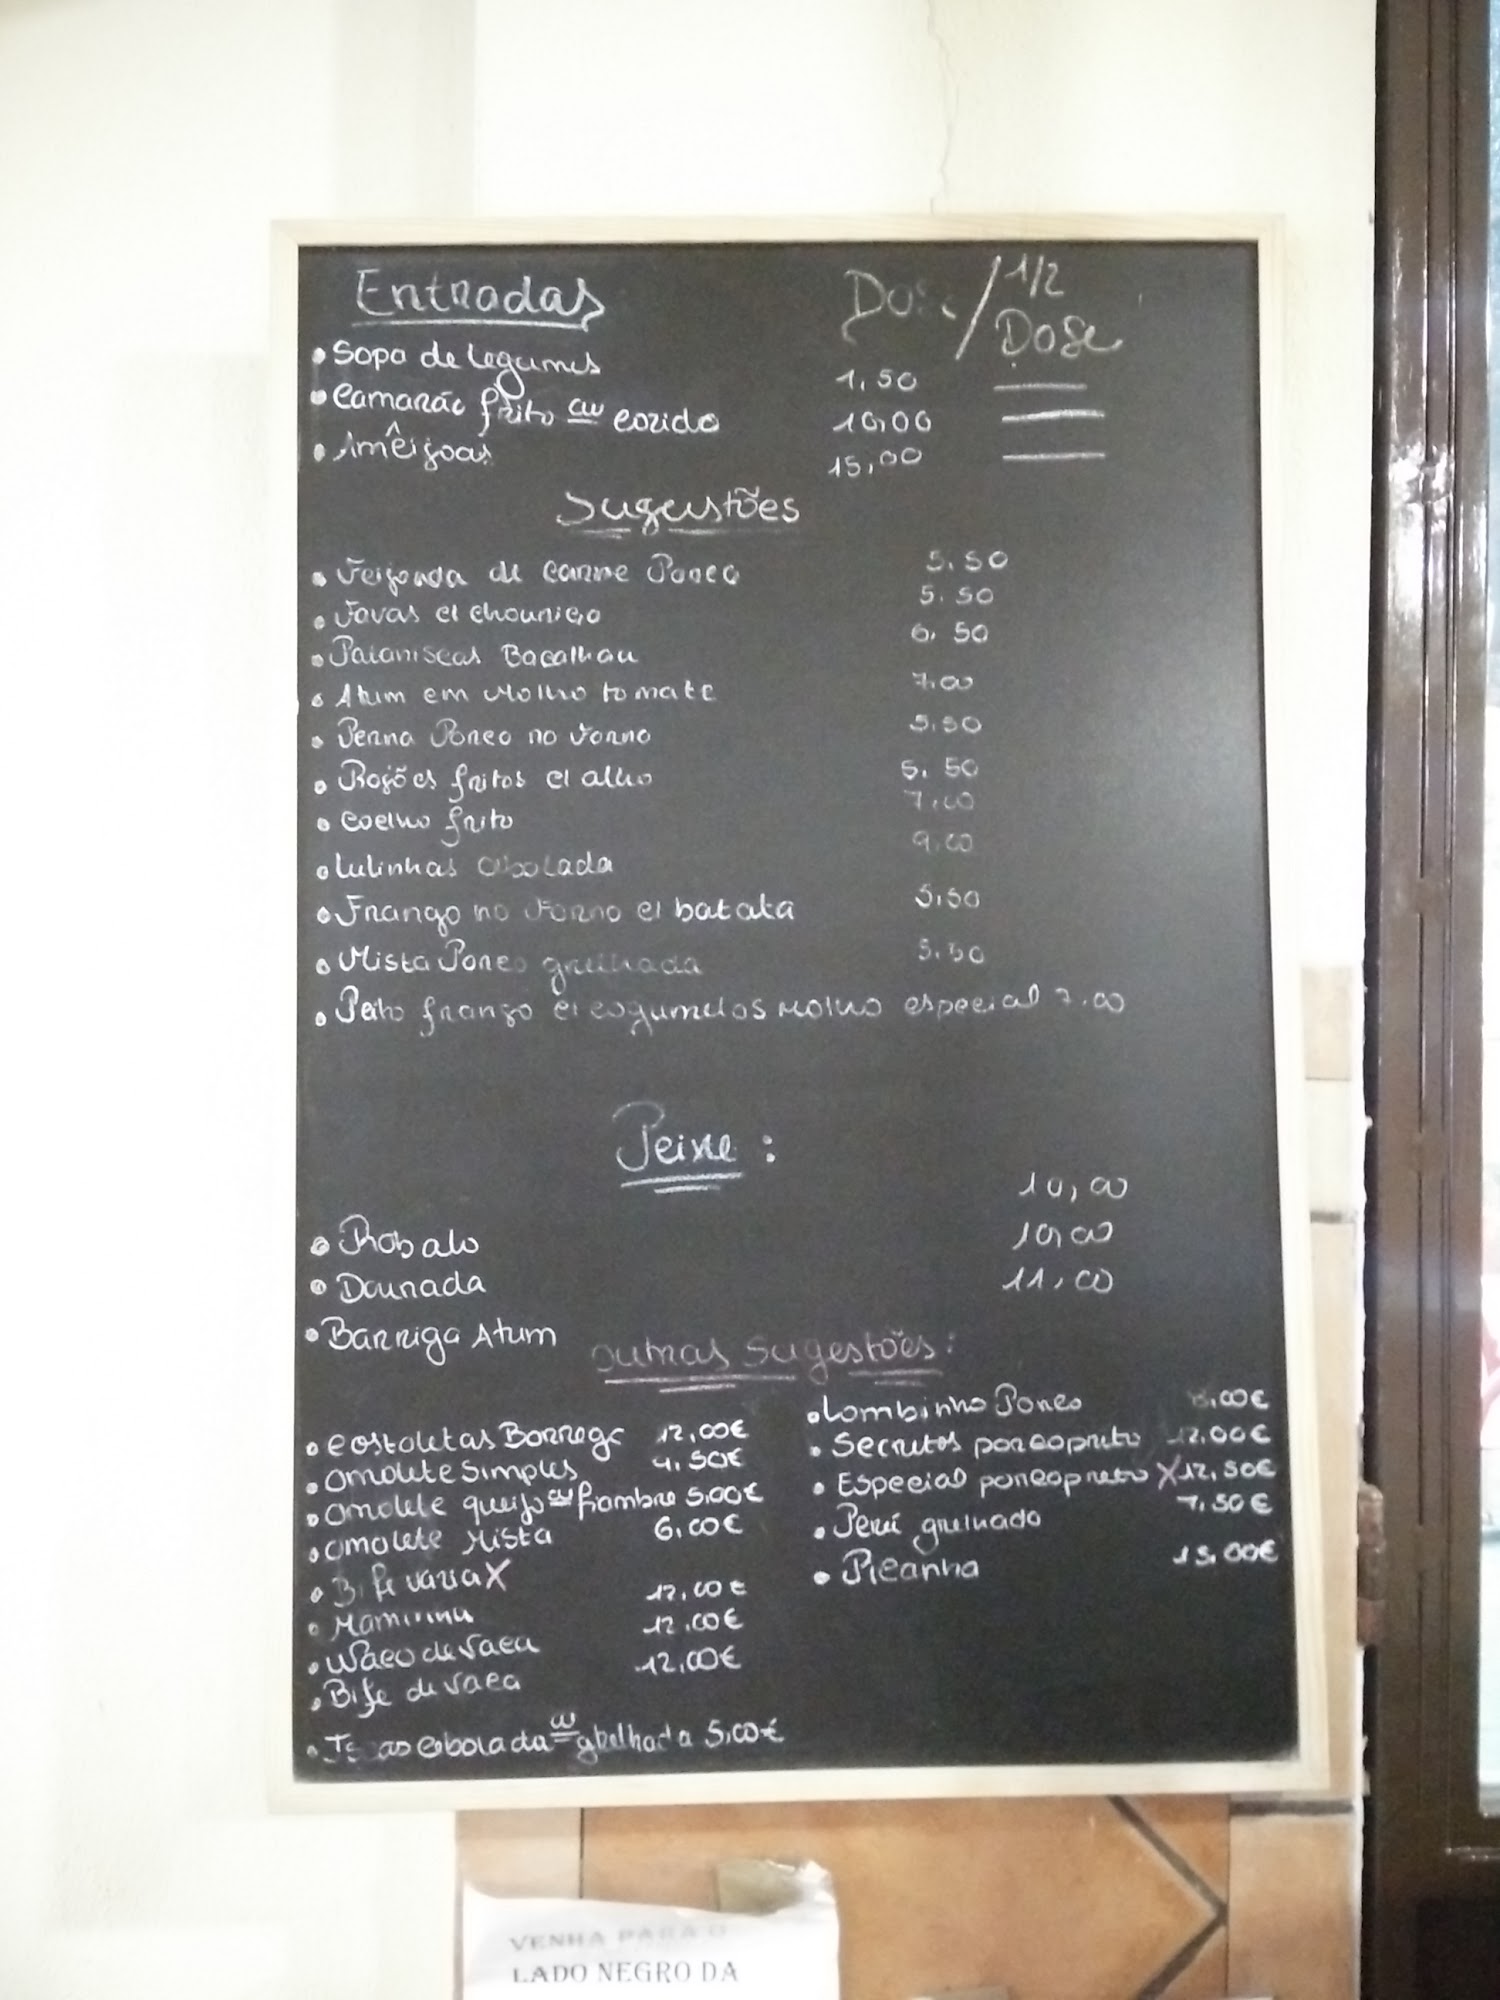 Entradas Dose / 1/2 Dose
• Sopa de legumes 1,50 —
• Camarão frito ou cozido 10,00 —
• Amêijoas 15,00 —
Sugestões
• Feijoada de carne Porco 5.50
• Favas c/ chouriço 5.50
• Pataniscas Bacalhau 6,50
• Atum em Molho tomate 7.00
• Perna Porco no Forno 5,50
• Rojões fritos c/ alho 5.50
• Coelho frito 7,00
• Lulinhas cbolada 9,00
• Frango no Forno c/ batata 5,50
• Mista Porco grelhada 5.50
• Peito frango c/ cogumelos Molho especial 7.00
Peixe :
• Robalo 10,00
• Dourada 10,00
• Barriga Atum 11,00
outras sugestões :
• costoletas Borrego 12,00€
• omolete Simples 4,50€
• omolete queijo ou fiambre 5,00€
• omolete Mista 6,00€
• Bife vazia X
• Maminha 12,00€
• Naco de Vaca 12,00€
• Bife de Vaca 12,00€
• cbolada ou grelhada 5,00€
• Lombinho Porco 8,00€
• Secretos porco preto 12.00€
• Especial porco preto X 12,50€
• Perú grelhado 7.50€
• Picanha 15,00€
VENHA PARA O
LADO NEGRO DA